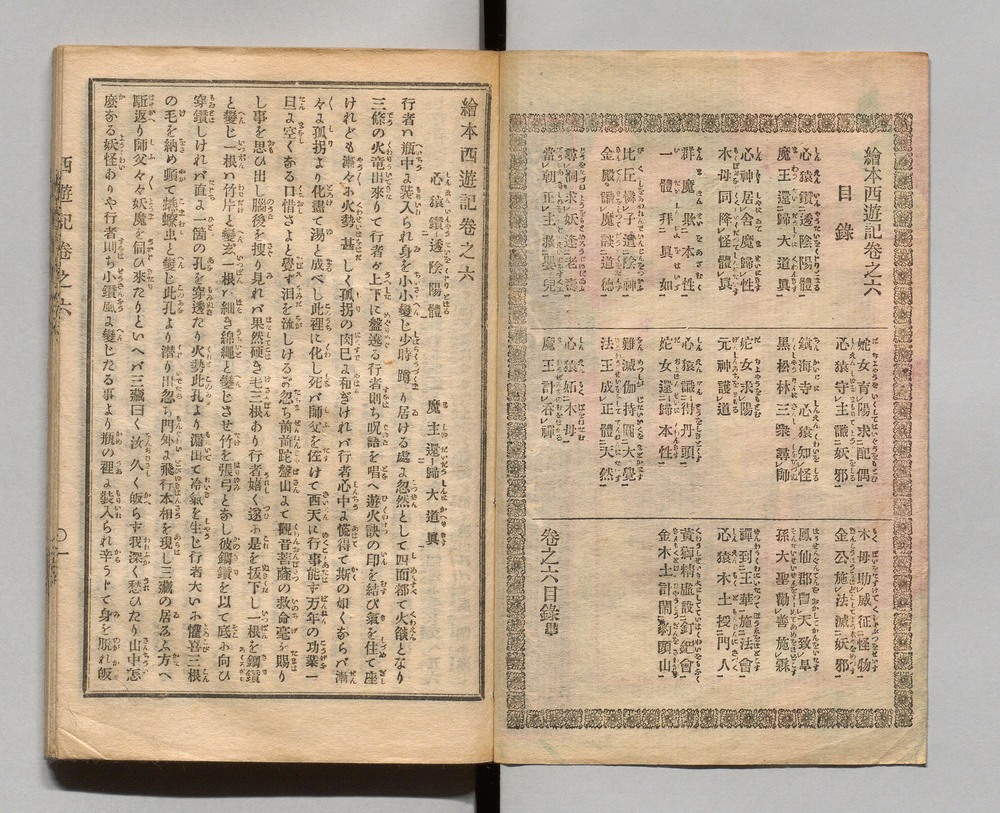 繪本西遊記卷之六
目錄
心猿鑽透陰陽體
魔王還歸大道眞
心神居舍魔歸性
木母同降怪體眞
群魔欺本性
一體拜眞如
比丘憐子遣陰神
金殿識魔談道德
尋洞求妖逢老壽
當朝正主救嬰兒
姹女育陽求配偶
心猿守主識妖邪
鎮海寺心猿知怪
黒松林三衆尋師
姹女求陽
元神護道
心猿識得丹頭
姹女還歸本性
難滅伽持圓大覺
法王成正體天然
心猿妬木母
魔王計吞禪
木母助威征怪物
金公施法滅妖邪
鳳仙郡冒天致旱
孫大聖勸善施霖
禪到玉華施法會
心猿木土授門人
黃獅精虛設釘鈀會
金木土計鬧豹頭山
卷之六目錄畢
繪本西遊記卷之六
心猿鑽透陰陽體 魔主還歸大道眞
行者ハ瓶中に裝入られ身を小小變じ少時蹲り居ける處よ忽然として四面都て火燄となり
三條の火竜出來りて行者が上下に盤遶る行者則ち呪語を唱へ遊火訣の印を結び氣を住て座
けれども漸々火勢甚しく孤拐の肉已よ和ぎければ行者心中よ慌得て斯の如くならバ漸
々よ孤拐より化盡て湯と成べし此裡に化し死バ師父を侄けて西天に行事能ず万年の功業一
旦よ空くなる口惜さよと覺す泪を流しけるが忽ち前前陀盤山よて觀音菩薩の救命毫を賜り
し事を思ひ出し腦後を搜り見れバ果然硬き毛三根あり行者嬉く遂に是を拔下し一根を鋼鑽
と變じ一根ハ竹片と變玄一根ハ細き綿繩と變じさせ竹を張弓となし彼鋼鑽を以て底に向ひ
穿鑽しければ直よ一箇の孔を穿透たり火勢此孔より漏出て冷氣を生じ行者大いに懽喜三根
の毛を納め頓て蟭蟟虫と變じ此孔より潛り出忽ち門外よ飛行本相を現し三藏の居る方へ
馳返り師父々々妖魔を伺ひ來たりといへバ三藏曰く汝久く皈らず我深く愁ひたり山中怎
麽なる妖怪ありや行者則ち小鑽風よ變じたる事より瓶の裡よ裝入られ辛うじて身を脱れ皈
西遊記 卷之六
〇一